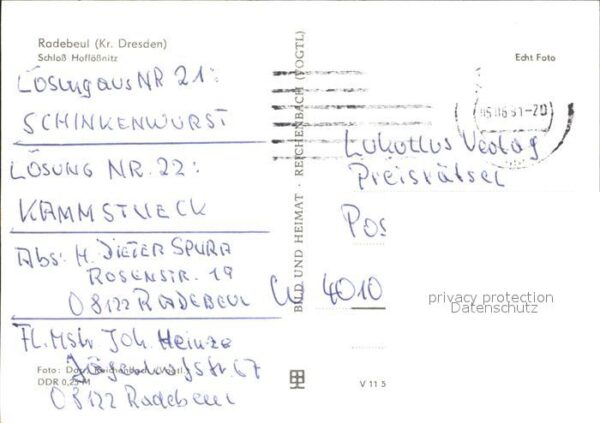 Radebeul (Kr. Dresden)
Schloß Hoflößnitz
Echt Foto
Lösung aus NR 21:
SCHINKENWURST
LÖSUNG NR. 22:
KAMMSTUECK
Abs: H. DIETER SPURR
ROSENSTR. 19
O 8122 RADEBEUL
Fl. Mstr. Joh. Heinze
67
O 8122 Radebeul
Foto: Darr, Reichenbach (Vogtl.)
DDR 0,25 M
BILD UND HEIMAT · REICHENBACH (VOGTL)
05.06.91-20
Lukullus Verlag
Preisrätsel
Pos
W 4010
privacy protection
Datenschutz
V 11 5